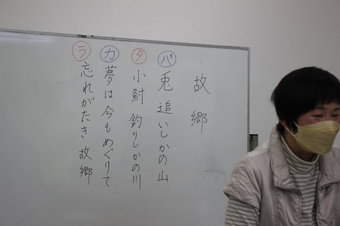 故郷
パ 兎追いしかの山
タ 小鮒釣りしかの川
カ 夢は今もめぐりて
ラ 忘れがたき故郷